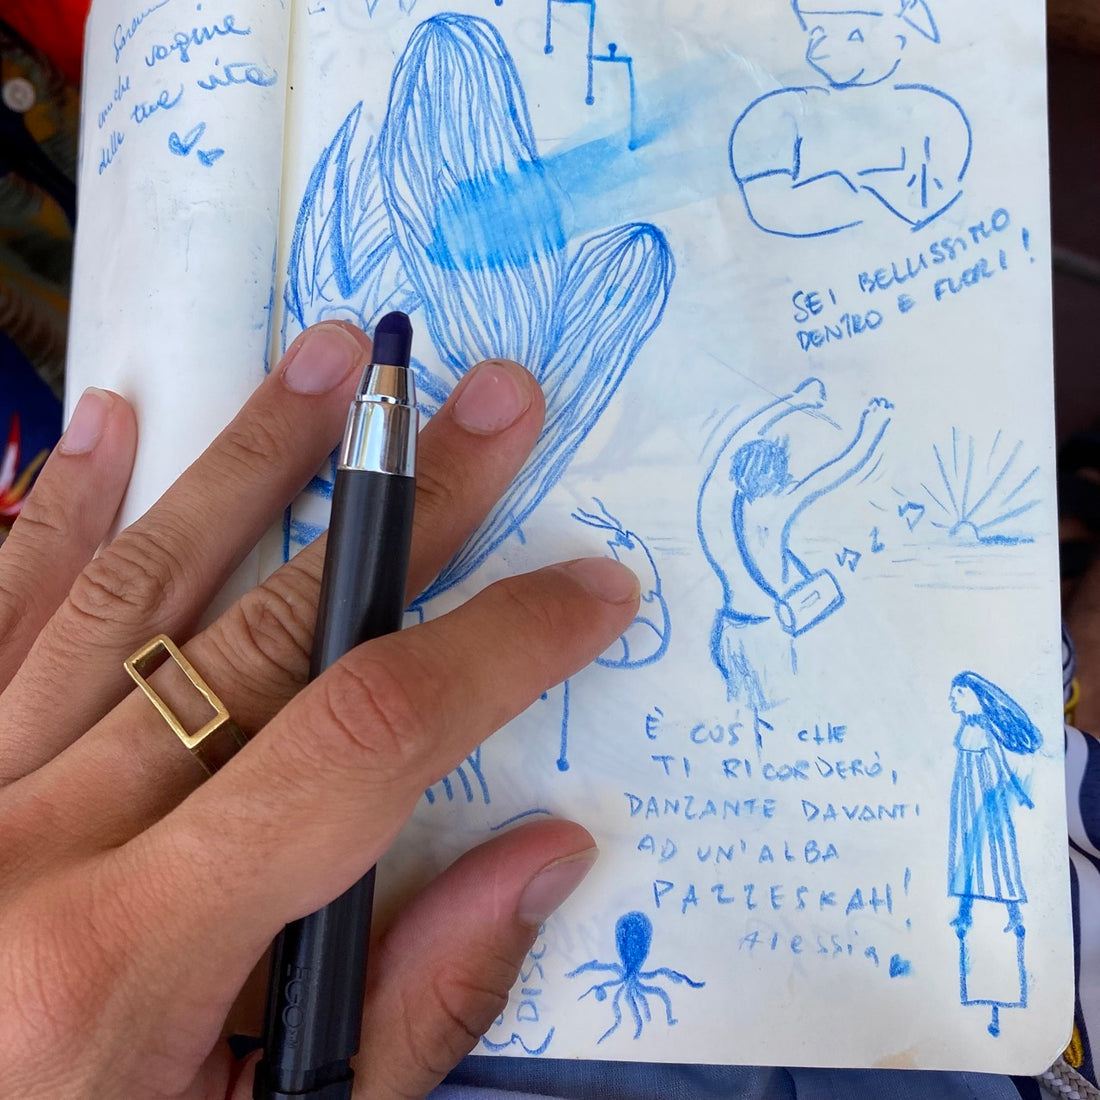 anche
vagine
della tua vita
SEI BELLISSIMO
DENTRO E FUORI!
È COSÌ CHE
TI RICORDERÒ,
DANZANTE DAVANTI
AD UN'ALBA
PAZZESKAH!
Alessia
DISCO
EGO